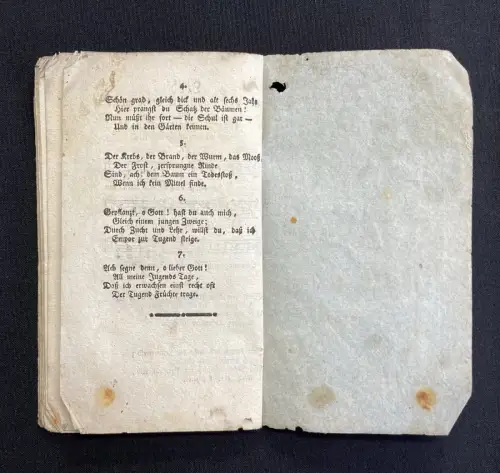 4.
Schön grad, gleich dick und alt sechs Jahr
Hier prangst du Schatz der Bäumen!
Nun müßt ihr fort — die Schul ist gar —
Und in den Gärten keimen.
5.
Der Krebs, der Brand, der Wurm, das Moos,
Der Frost, zersprungne Rinde
Sind, ach! dem Baum ein Todesstoß,
Wenn ich kein Mittel finde.
6.
Gepflanzt, o Gott! hast du auch mich,
Gleich einem jungen Zweige;
Durch Zucht und Lehr, willst du, daß ich
Empor zur Tugend steige.
7.
Ach segne denn, o lieber Gott!
All meine Jugends Tage,
Daß ich erwachsen einst recht oft
Der Tugend Früchte trage.